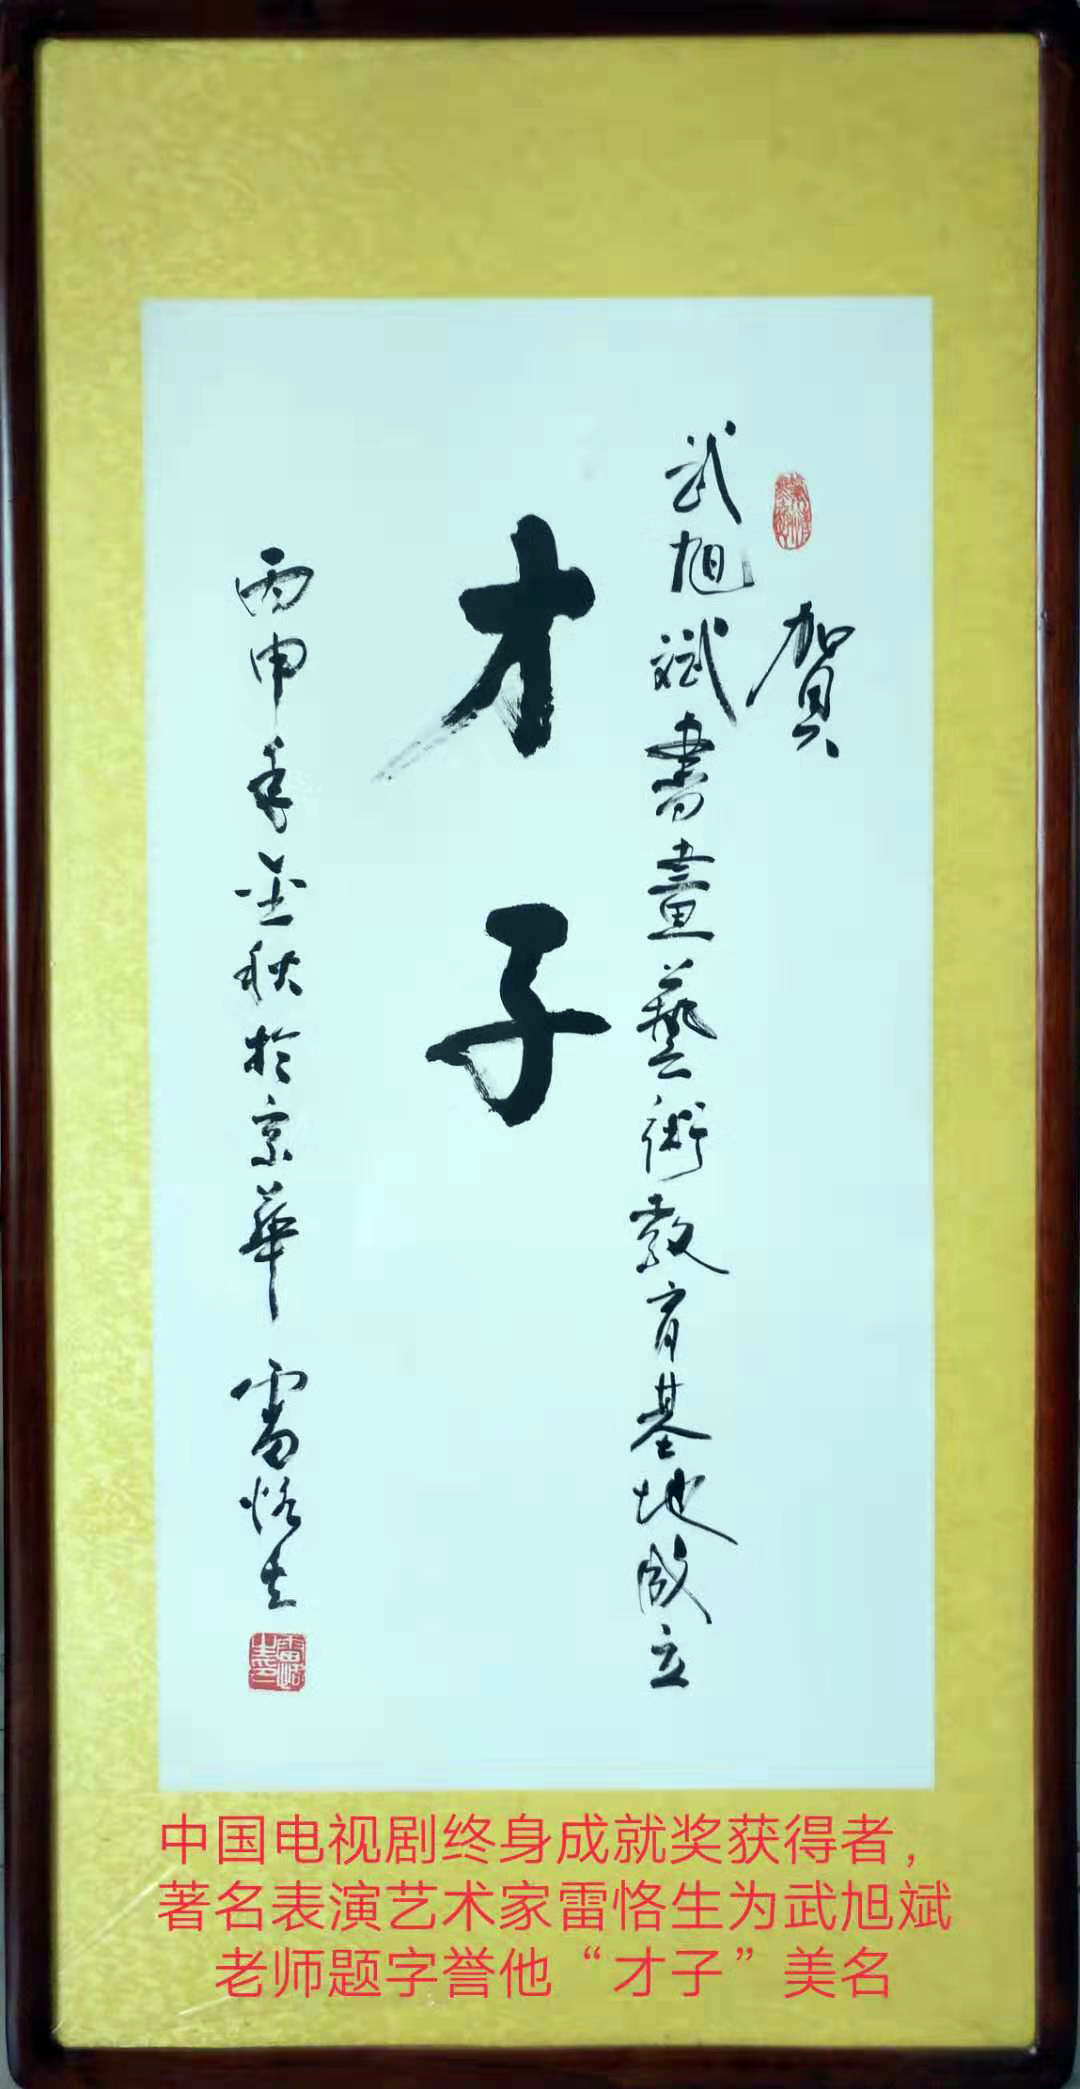 賀
武旭斌書畫藝術教育基地成立
才子
丙申年金秋於京華 雷恪生
中国电视剧终身成就奖获得者，
著名表演艺术家雷恪生为武旭斌
老师题字誉他“才子”美名